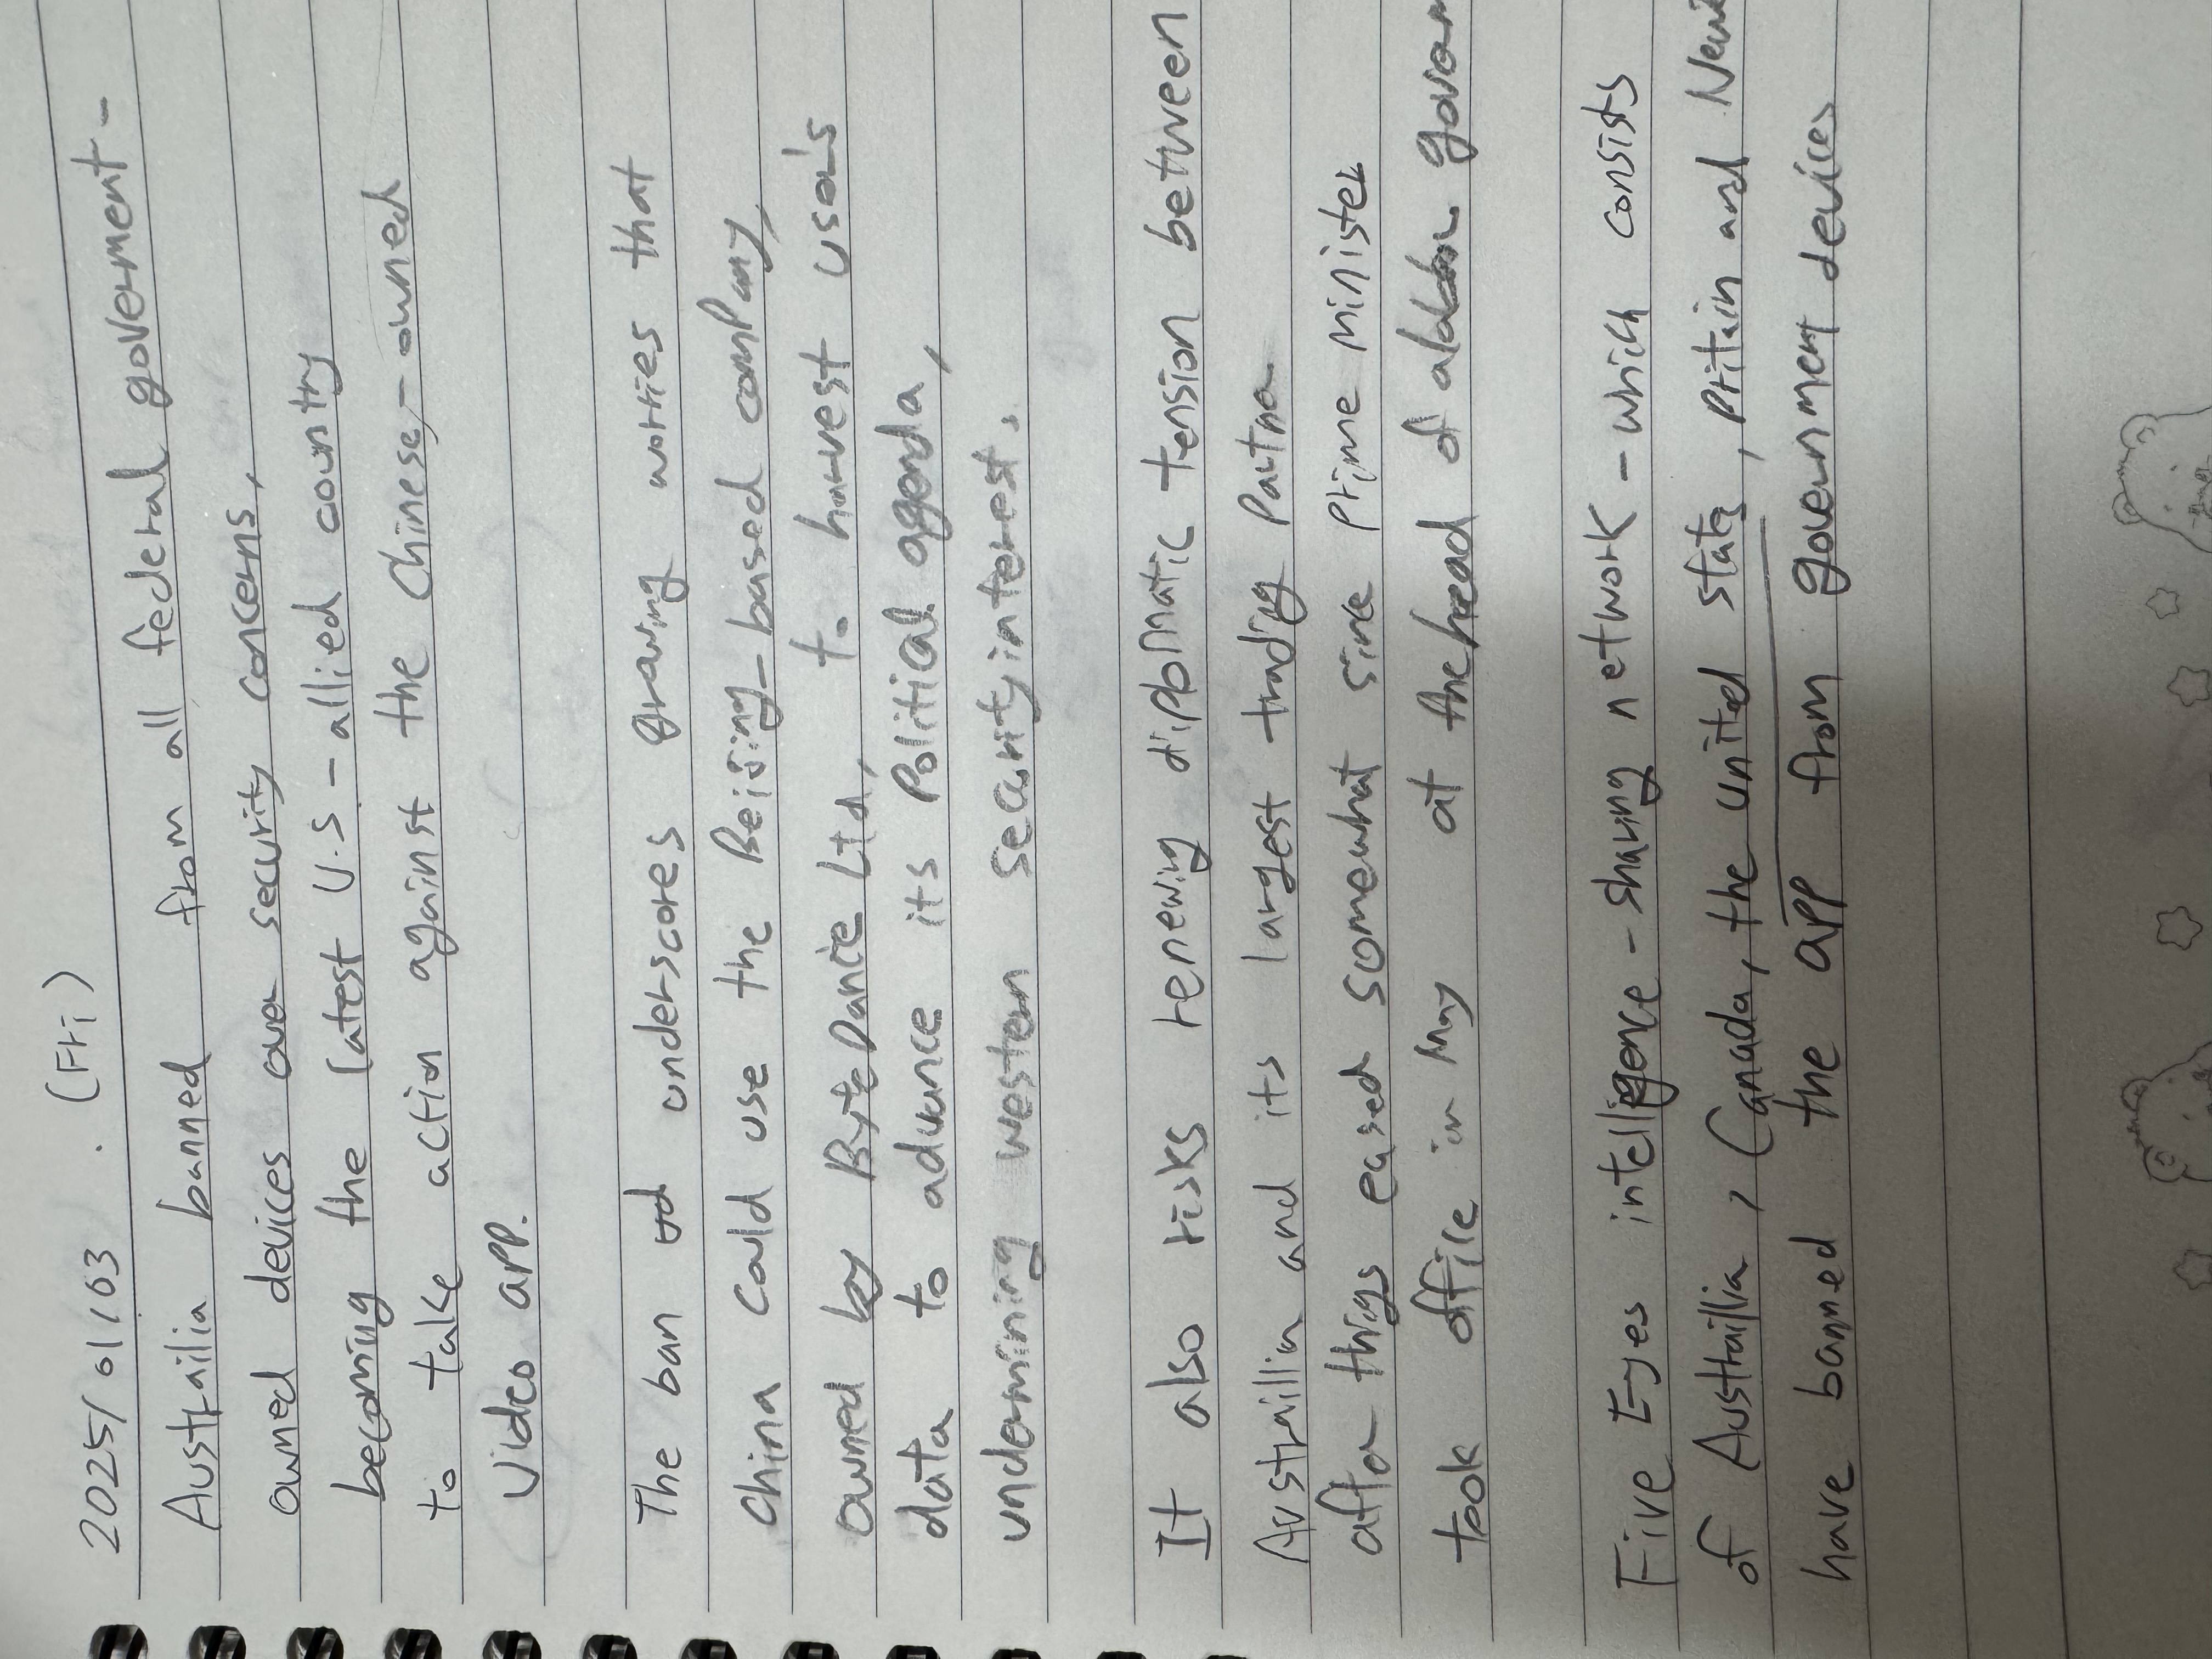 2025/01/03 . (Fri)
Austrailia banned from all federal governement-
owned devices over security concerns,
becoming the latest U.S-allied country
to take action against the Chinese,-owned
video app.
The ban underscores growing worries that
China could use the Beijing-based company,
owned by ByteDance Ltd, to harvest user's
data to advance its political agenda,
undermining western security interest.
It also risks renewing diplomatic tension between
Austraillia and its largest trading partner
after things eased somewhat since prime minister
took office in May at the head of
Five Eyes intelligence-sharing network - which consists
of Austraillia, Canada, the united states, Pritain and New
have banned the app from government devices